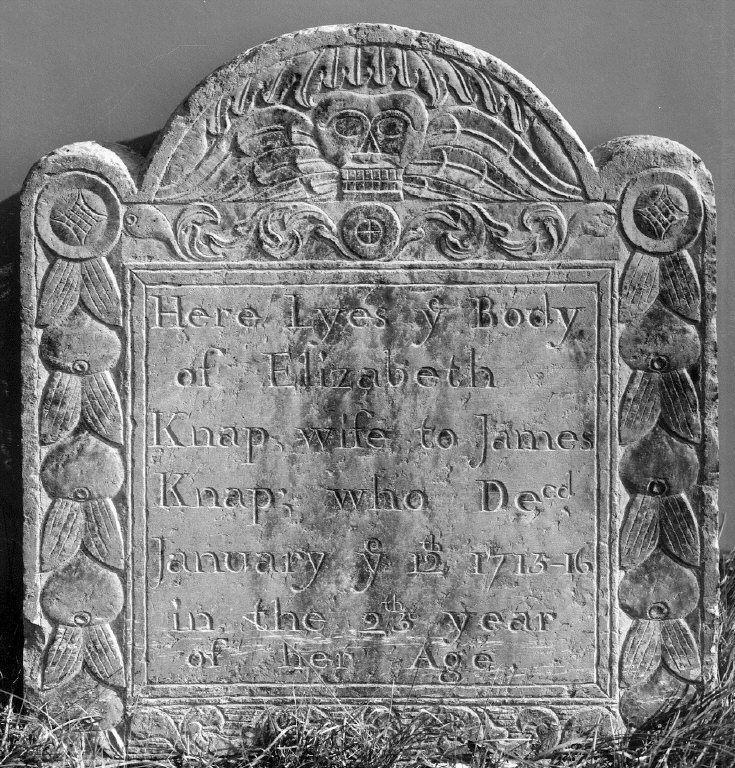 Here Lyes yͤ Body
of Elizabeth
Knap, wife to James
Knap; who Decd
January yͤ 12th 1715-16
in the 23th year
of her Age